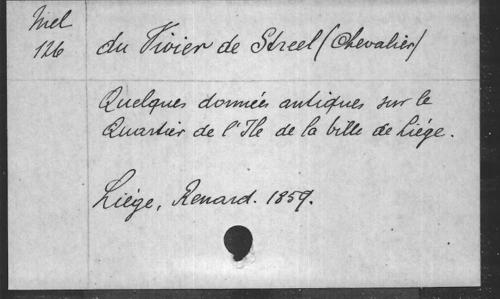 Mel
126
du Vivier de Streel (Chevalier)
Quelques données antiques sur le
Quartier de l'Ile de la ville de Liége.
Liége, Renard. 1859.